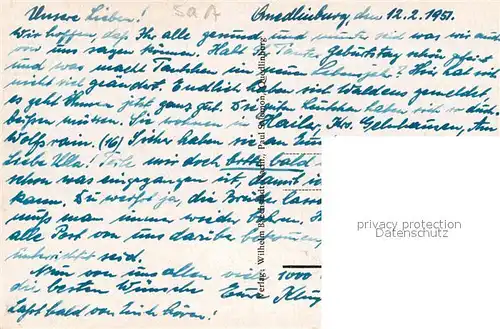 Unsere Lieben! Quedlinburg, den 12.2.1951.
Wir hoffen, daß Ihr alle gesund und munter seid was wir auch
von uns sagen können. Habt Ihr Tantes Geburtstag schön gefeiert
und was macht Tantchen im neuen Lebensjahr? Hier hat sich
nicht viel geändert. Endlich haben sich Waldens gemeldet,
es geht ihnen jetzt ganz gut. Die haben sich so
müssen. Sie wohnen in Hailer, Krs. Gelnhausen, Am
Wolfsrain. (16) Sicher haben sie an
Liebe Ulla! Teile mir doch bitte bald
schon was eingegangen ist, damit ich
kann. Du weißt ja, die
muß man immer wieder
alle Post von uns darüber bekommen,
unterrichtet seid.
Nun von uns allen viele 1000
die besten Wünsche Eure
Laßt bald von Euch hören!
Verlag: Wilhelm Paul Salomon, Quedlinburg
privacy protection
Datenschutz